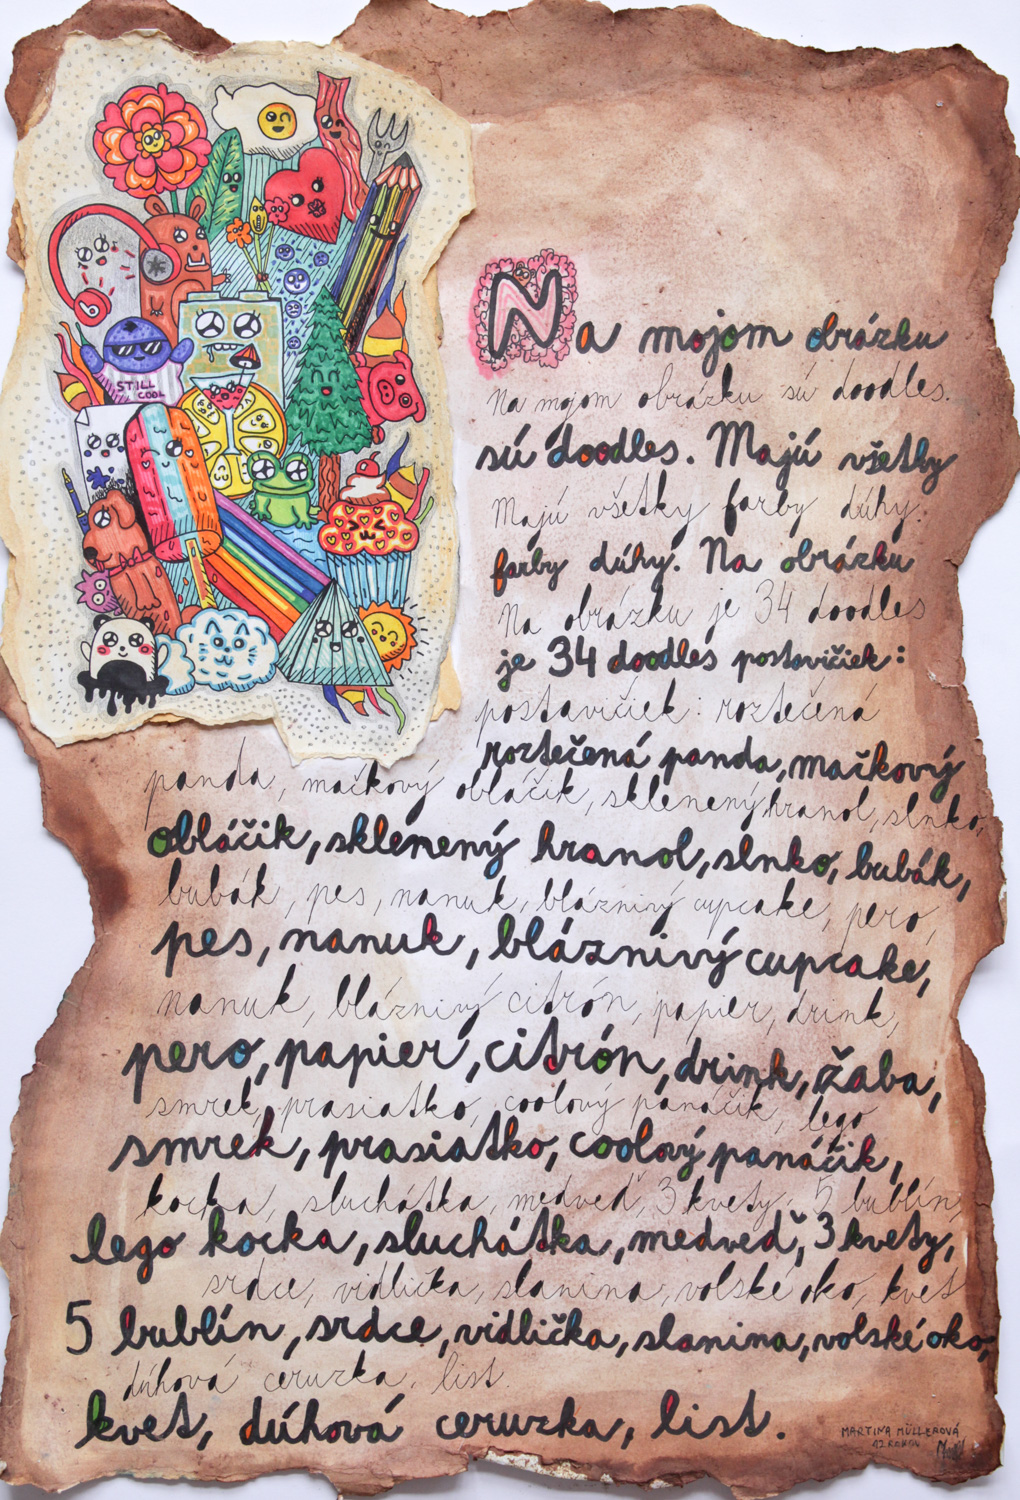 STILL
COOL
Na mojom obrázku
Na mojom obrázku sú doodles.
sú doodles. Majú všetky
Majú všetky farby dúhy.
farby dúhy. Na obrázku
Na obrázku je 34 doodles
je 34 doodles postavičiek:
postavičiek: roztečená
roztečená panda, mačkový
panda, mačkový obláčik, sklenený hranol, slnko,
obláčik, sklenený hranol, slnko, bubák,
bubák, pes, nanuk, bláznivý cupcake, pero,
pes, nanuk, bláznivý cupcake,
nanuk, bláznivý citrón, papier, drink,
pero, papier, citrón, drink, žaba,
smrek, prasiatko, coolový panáčik, lego
smrek, prasiatko, coolový panáčik,
kocka, sluchátka, medveď, 3 kvety, 5 bublín,
lego kocka, sluchátka, medveď, 3 kvety,
srdce, vidlička, slanina, volské oko, kvet
5 bublín, srdce, vidlička, slanina, volské oko,
dúhová ceruzka, list.
kvet, dúhová ceruzka, list.
MARTINA MÜLLEROVÁ
12 ROKOV